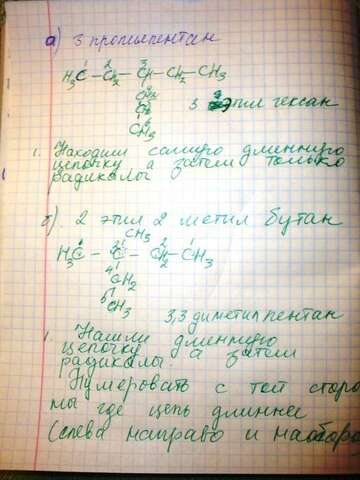 а) 3 пропилпентан
1 2 3
H₃C – CH₂ – CH – CH₂ – CH₃
CH₂
CH₂
CH₃
3 этил гексан
1. Находим самую длинную
цепочку а затем только
радикалы
б). 2 этил 2 метил бутан
CH₃
H₃C – C – CH₂ – CH₃
CH₂
CH₃
3,3 диметилпентан
1. Нашли длинную
цепочку а затем
радикалы.
Нумеровать с той сторо
мы где цепь длиннее
(слева направо и наоборо